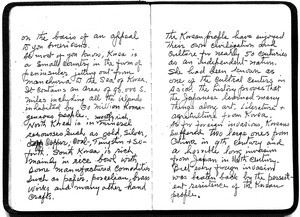 on the basis of an appeal
to you Americans.
Almost as you know, Korea is
a small country in the form of
peninsula jutting out from
Manchuria to the Sea of Korea.
It contains an area of 85,000 s.
miles including all the islands
inhabited by 30 million homo-
geneous people.
North Korea is in mineral
resources such as gold, silver,
iron, copper, coal, Tungsten &
South Korea is rich
mainly in rice bowl with
some manufactured commodities
such as papers, porcelain, brass
works and many other hand
crafts.
The Korean people have enjoyed
their own civilization and
culture for nearly 50 centuries
as an independent nation.
She had been known as
one of the cultural centers in
Asia. The history proves that
the Japanese learned many
things along art, literature &
agriculture from Korea.
As for foreign invasions, Koreans
suffered two large ones from
China in 9th century and
a horrible long invasion
from Japan in 16th century.
But any foreign invasion
was beaten back by the persist-
ent resistence of the Korean
people.